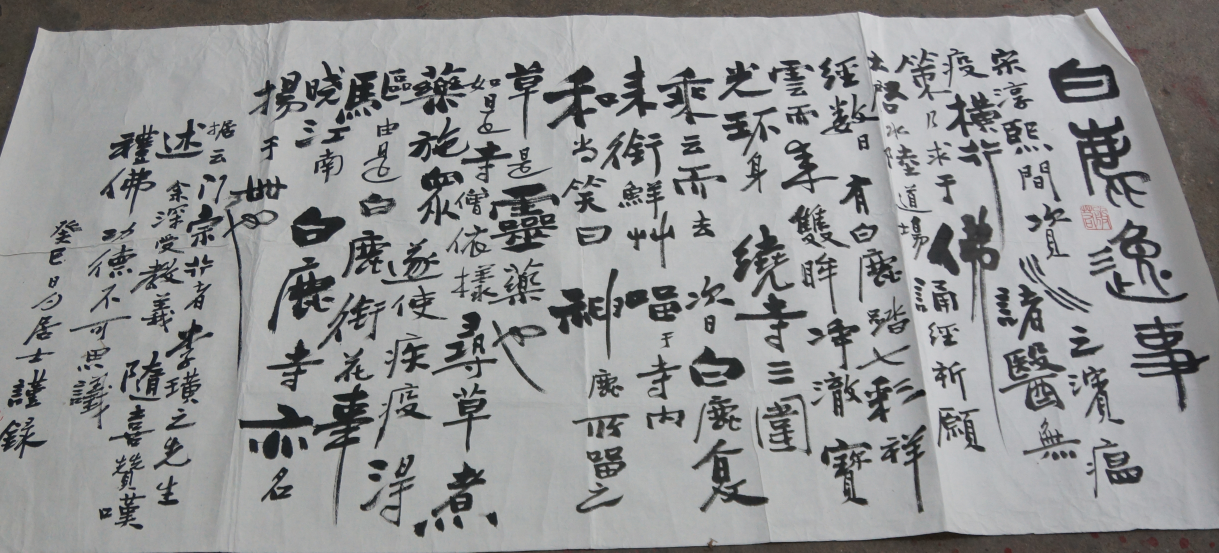 白鹿逸事
宋淳熙間次川之濱瘟
疫橫行諸醫無
策乃求于佛誦經祈願
大啓水陸道場
經數日有白鹿踏七彩祥
雲而來雙眸凈澈寶
光环身繞寺三圍
乘云而去次日白鹿复
来銜鮮艸噹于寺内
和尚笑曰神鹿所留之
草是靈藥也
如是寺僧依樣尋草煮
藥施眾遂使疾疫得
驅由是白鹿銜花事
馬
晓江南白鹿寺亦名
揚于世也
据云门宗行者李璜之先生
述余深受教義隨喜贊嘆
禮佛功德不可思議
癸巳日白居士謹錄